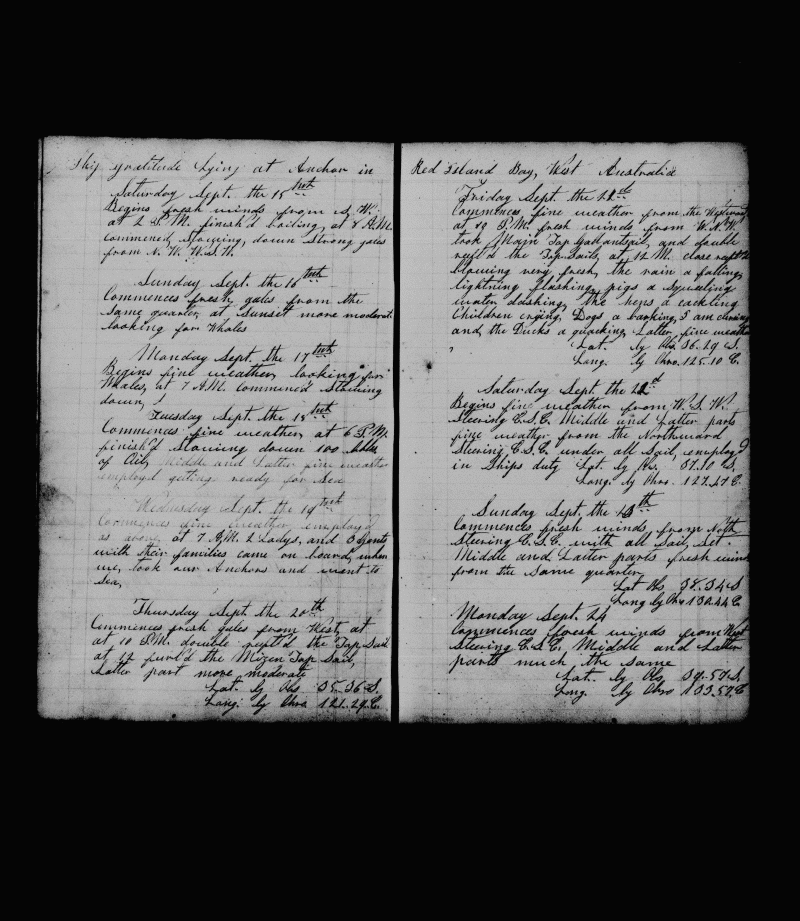 Ship Gratitude Lying at Anchor in
Saturday Sept. the 15
Begins fresh winds from W.
at 2 P.M. finish'd boiling, at 8 A.M.
commenced stowing down strong gales
from N. W. W.S.W.
Sunday Sept. the 16
Commences fresh gales from the
same quarter, at Sunset more moderate
looking for Whales
Monday Sept. the 17
Begins fine weather looking for
Whales, at 7 A.M. commenced Stowing
down,
Tuesday Sept. the 18
Commences fine weather, at 6 P.M.
finish'd Stowing down 100
of Oil, Middle and Latter fine weather
employd getting ready for Sea
Wednesday Sept. the 19
Commences fine weather employ'd
as above, at 7 A.M. 2 Ladys, and 3 Gents
with their families came on board, when
we, took our Anchors and went to
Sea,
Thursday Sept. the 20th
Commences fresh gales from West, at
at 10 P.M. double reef'd the Top Sail
at 12 furl'd the Mizen Top Sail,
Latter part more moderate
Lat. by Obs 35..36 S.
Long. by Chro. 121..29.E.
Red Island Bay, West Australia
Friday Sept. the 21st
Commences fine weather from the Westward
at 10 P.M. fresh winds from W.N.W.
took Main Top Gallantsail, and double
reef'd the Top Sails, at 12 M. close reef'd
blowing very fresh, the rain a falling,
lightning flashing, pigs a squealing
water dashing, the hens a cackling
Children crying, Dogs a barking,
and the Ducks a quacking, Latter, fine weather
Lat. by Obs. 36..29 S.
Long. by Chro. 125.10 E.
Saturday Sept the 22d
Begins fine weather from W. S. W.
Steering E.S.E. Middle and Latter parts
fine weather from the Northward
Steering E.S.E. under all Sail, employd
in Ships duty Lat. by Obs. 37.10 S.
Long. by Chro. 127.47 E.
Sunday Sept. the 23th
Commences fresh winds, from North
Steering E.S.E. with all Sail Set.
Middle and Latter parts fresh winds
from the same quarter,
Lat Obs 38.34 S
Long by Chro 130.44 E.
Monday Sept. 24
Commences fresh winds from West
Steering E.S.E. Middle and Latter
parts much, the same
Lat. by Obs 39..57 S.
Long. by Chro 133.57.E